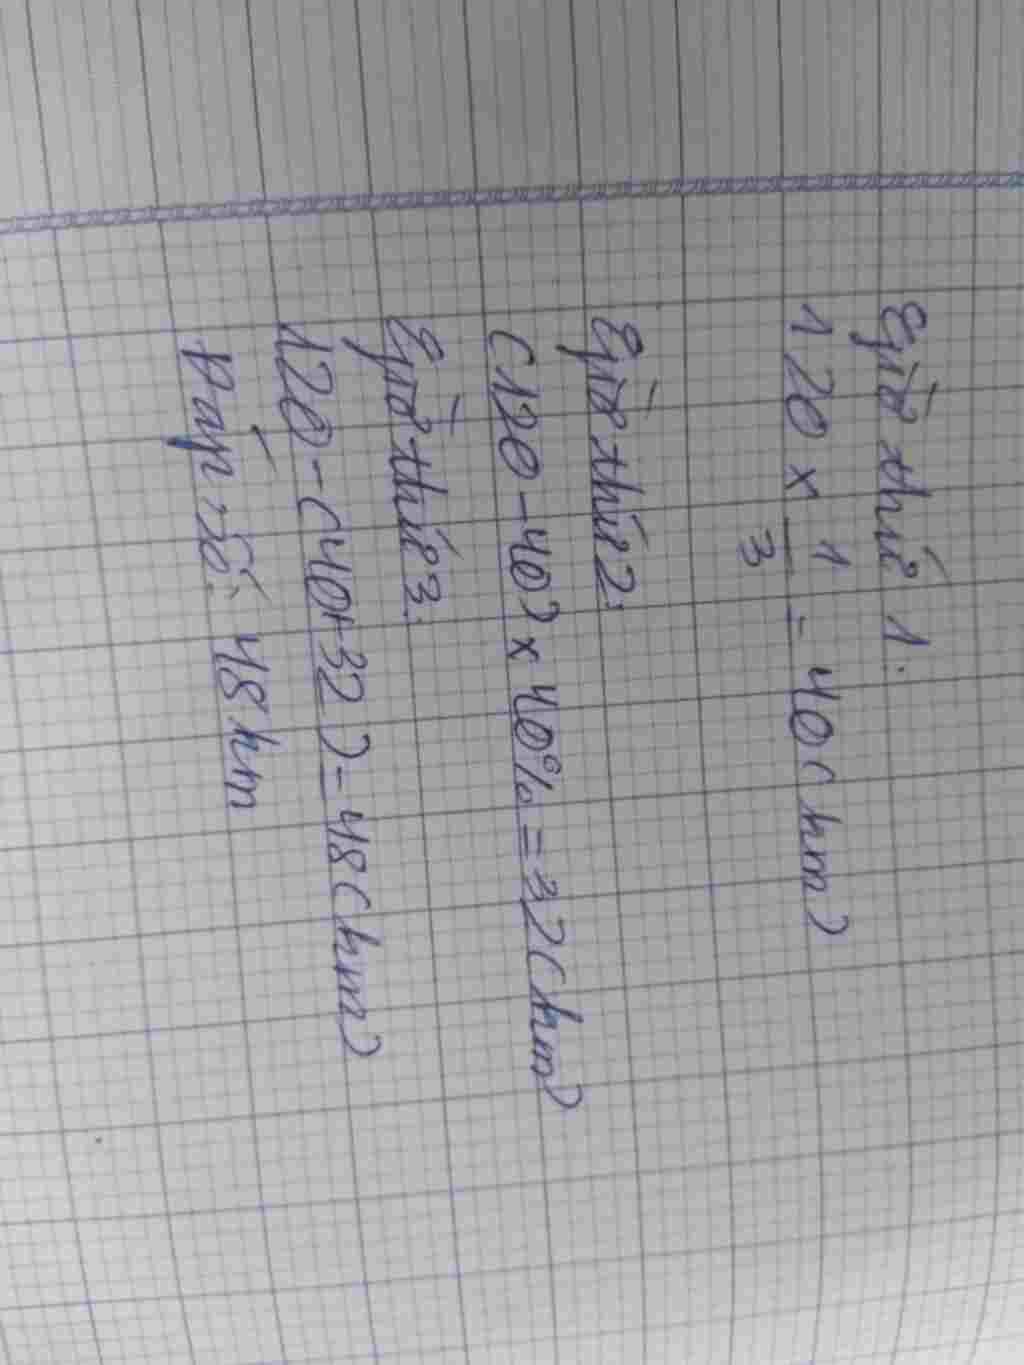 Giờ thứ 1:
120 x 1/3 = 40 (km)
Giờ thứ 2:
(120 - 40) x 40% = 32 (km)
Giờ thứ 3:
120 - (40 + 32) = 48 (km)
Đáp số: 48 km